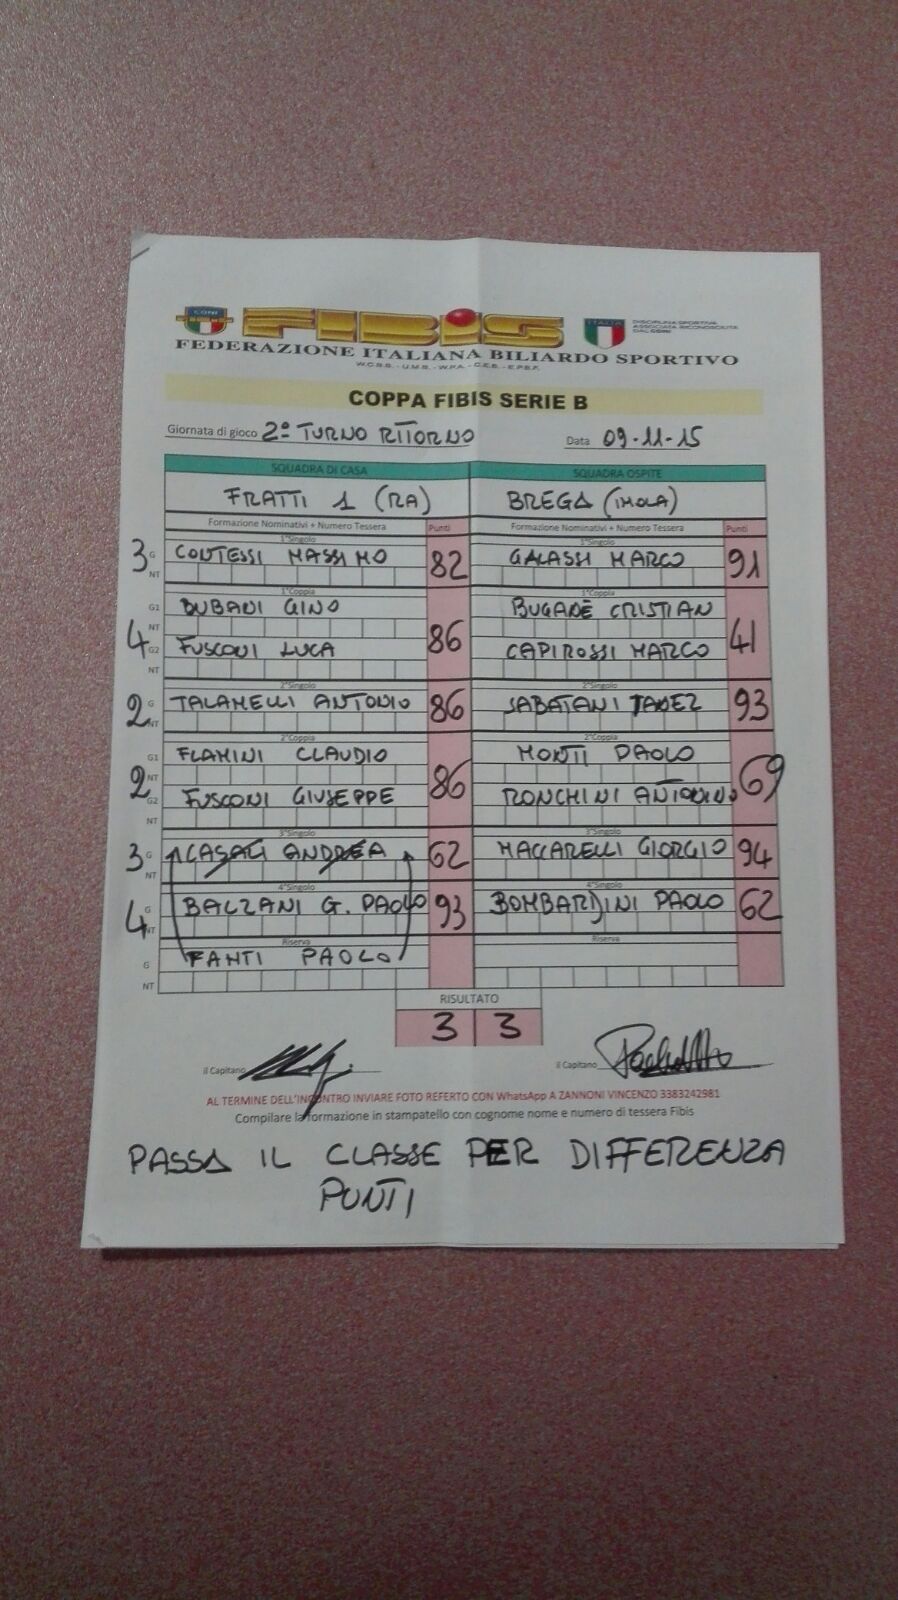 CONI
FIBIS
ITALIA
DISCIPLINA SPORTIVA
ASSOCIATA RICONOSCIUTA
DAL CONI
FEDERAZIONE ITALIANA BILIARDO SPORTIVO
W.C.B.S. - U.M.B. - W.P.A. - C.E.B. - E.P.B.F.
COPPA FIBIS SERIE B
Giornata di gioco 2° TURNO RITORNO Data 09-11-15
SQUADRA DI CASA SQUADRA OSPITE
FRATTI 1 (RA) BREGA (IMOLA)
Formazione Nominativi + Numero Tessera Punti Formazione Nominativi + Numero Tessera Punti
1°Singolo 1°Singolo
3 G CONTESSI MASSIMO 82 GALASSI MARCO 91
NT
1°Coppia 1°Coppia
G1 BUBANI GINO BUGANÈ CRISTIAN
NT
4 86 41
G2 FUSCONI LUCA CAPIROSSI MARCO
NT
2°Singolo 2°Singolo
2 G TALAMELLI ANTONIO 86 SABATANI 93
NT
2°Coppia 2°Coppia
G1 FLAMINI CLAUDIO MONTI PAOLO
NT
2 86 69
G2 FUSCONI GIUSEPPE RONCHINI ANTONINO
NT
3°Singolo 3°Singolo
3 G CASAGI ANDREA 62 MACCARELLI GIORGIO 94
NT
4°Singolo 4°Singolo
4 G BALZANI G. PAOLO 93 BOMBARDINI PAOLO 62
NT
Riserva Riserva
G FANTI PAOLO
NT
RISULTATO
3 3
il Capitano il Capitano
AL TERMINE DELL'INCONTRO INVIARE FOTO REFERTO CON WhatsApp A ZANNONI VINCENZO 3383242981
Compilare la formazione in stampatello con cognome nome e numero di tessera Fibis
PASSA IL CLASSE PER DIFFERENZA
PUNTI